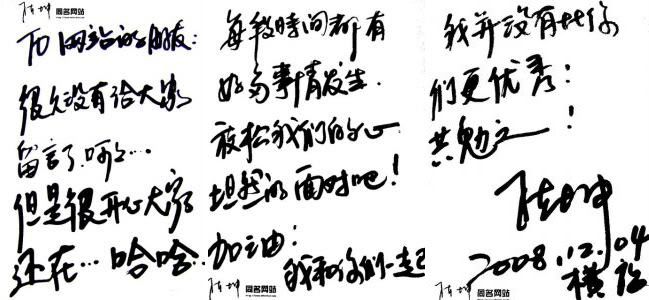 同名网站
TO 网站的朋友:
很久没有给大家
留言了.呵呵...
但是很开心大家
还在...哈哈.
每段时间都有
好多事情发生.
放松我们的心
坦然的面对吧!
加油:
我和你们一起
同名网站
同名网站
我并没有比你
们更优秀:
共勉之!
陈坤
2008.12.04
横店